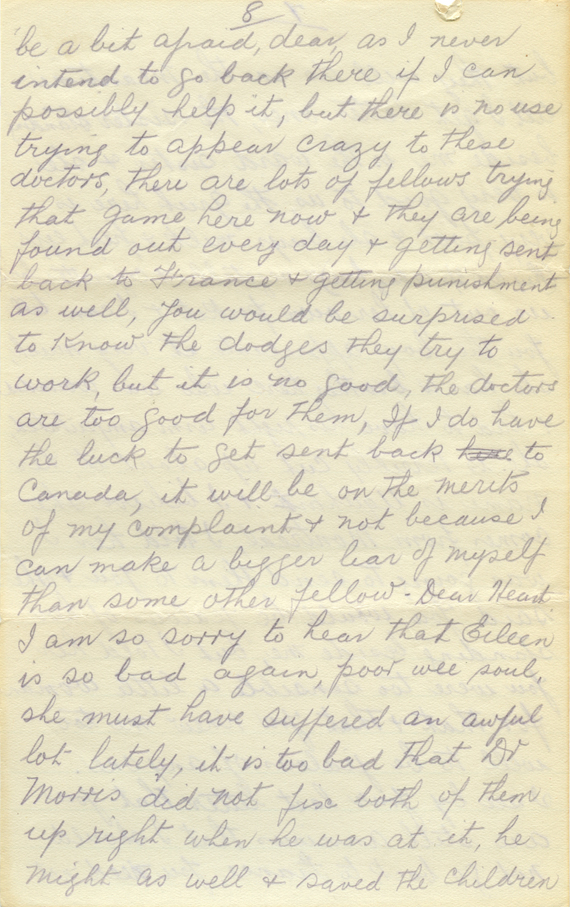 8
be a bit afraid, dear, as I never
intend to go back there if I can
possibly help it, but there is no use
trying to appear crazy to these
doctors, there are lots of fellows trying
that game here now & they are being
found out every day & getting sent
back to France & getting punishment
as well, you would be surprised
to know the dodges they try to
work, but it is no good, the doctors
are too good for them, If I do have
the luck to get sent back here to
Canada, it will be on the merits
of my complaint & not because I
can make a bigger liar of myself
than some other fellow - Dear Heart
I am so sorry to hear that Eileen
is so bad again, poor wee soul,
she must have suffered an awful
lot lately, it is too bad that Dr
Morris did not fix both of them
up right when he was at it, he
might as well & saved the children